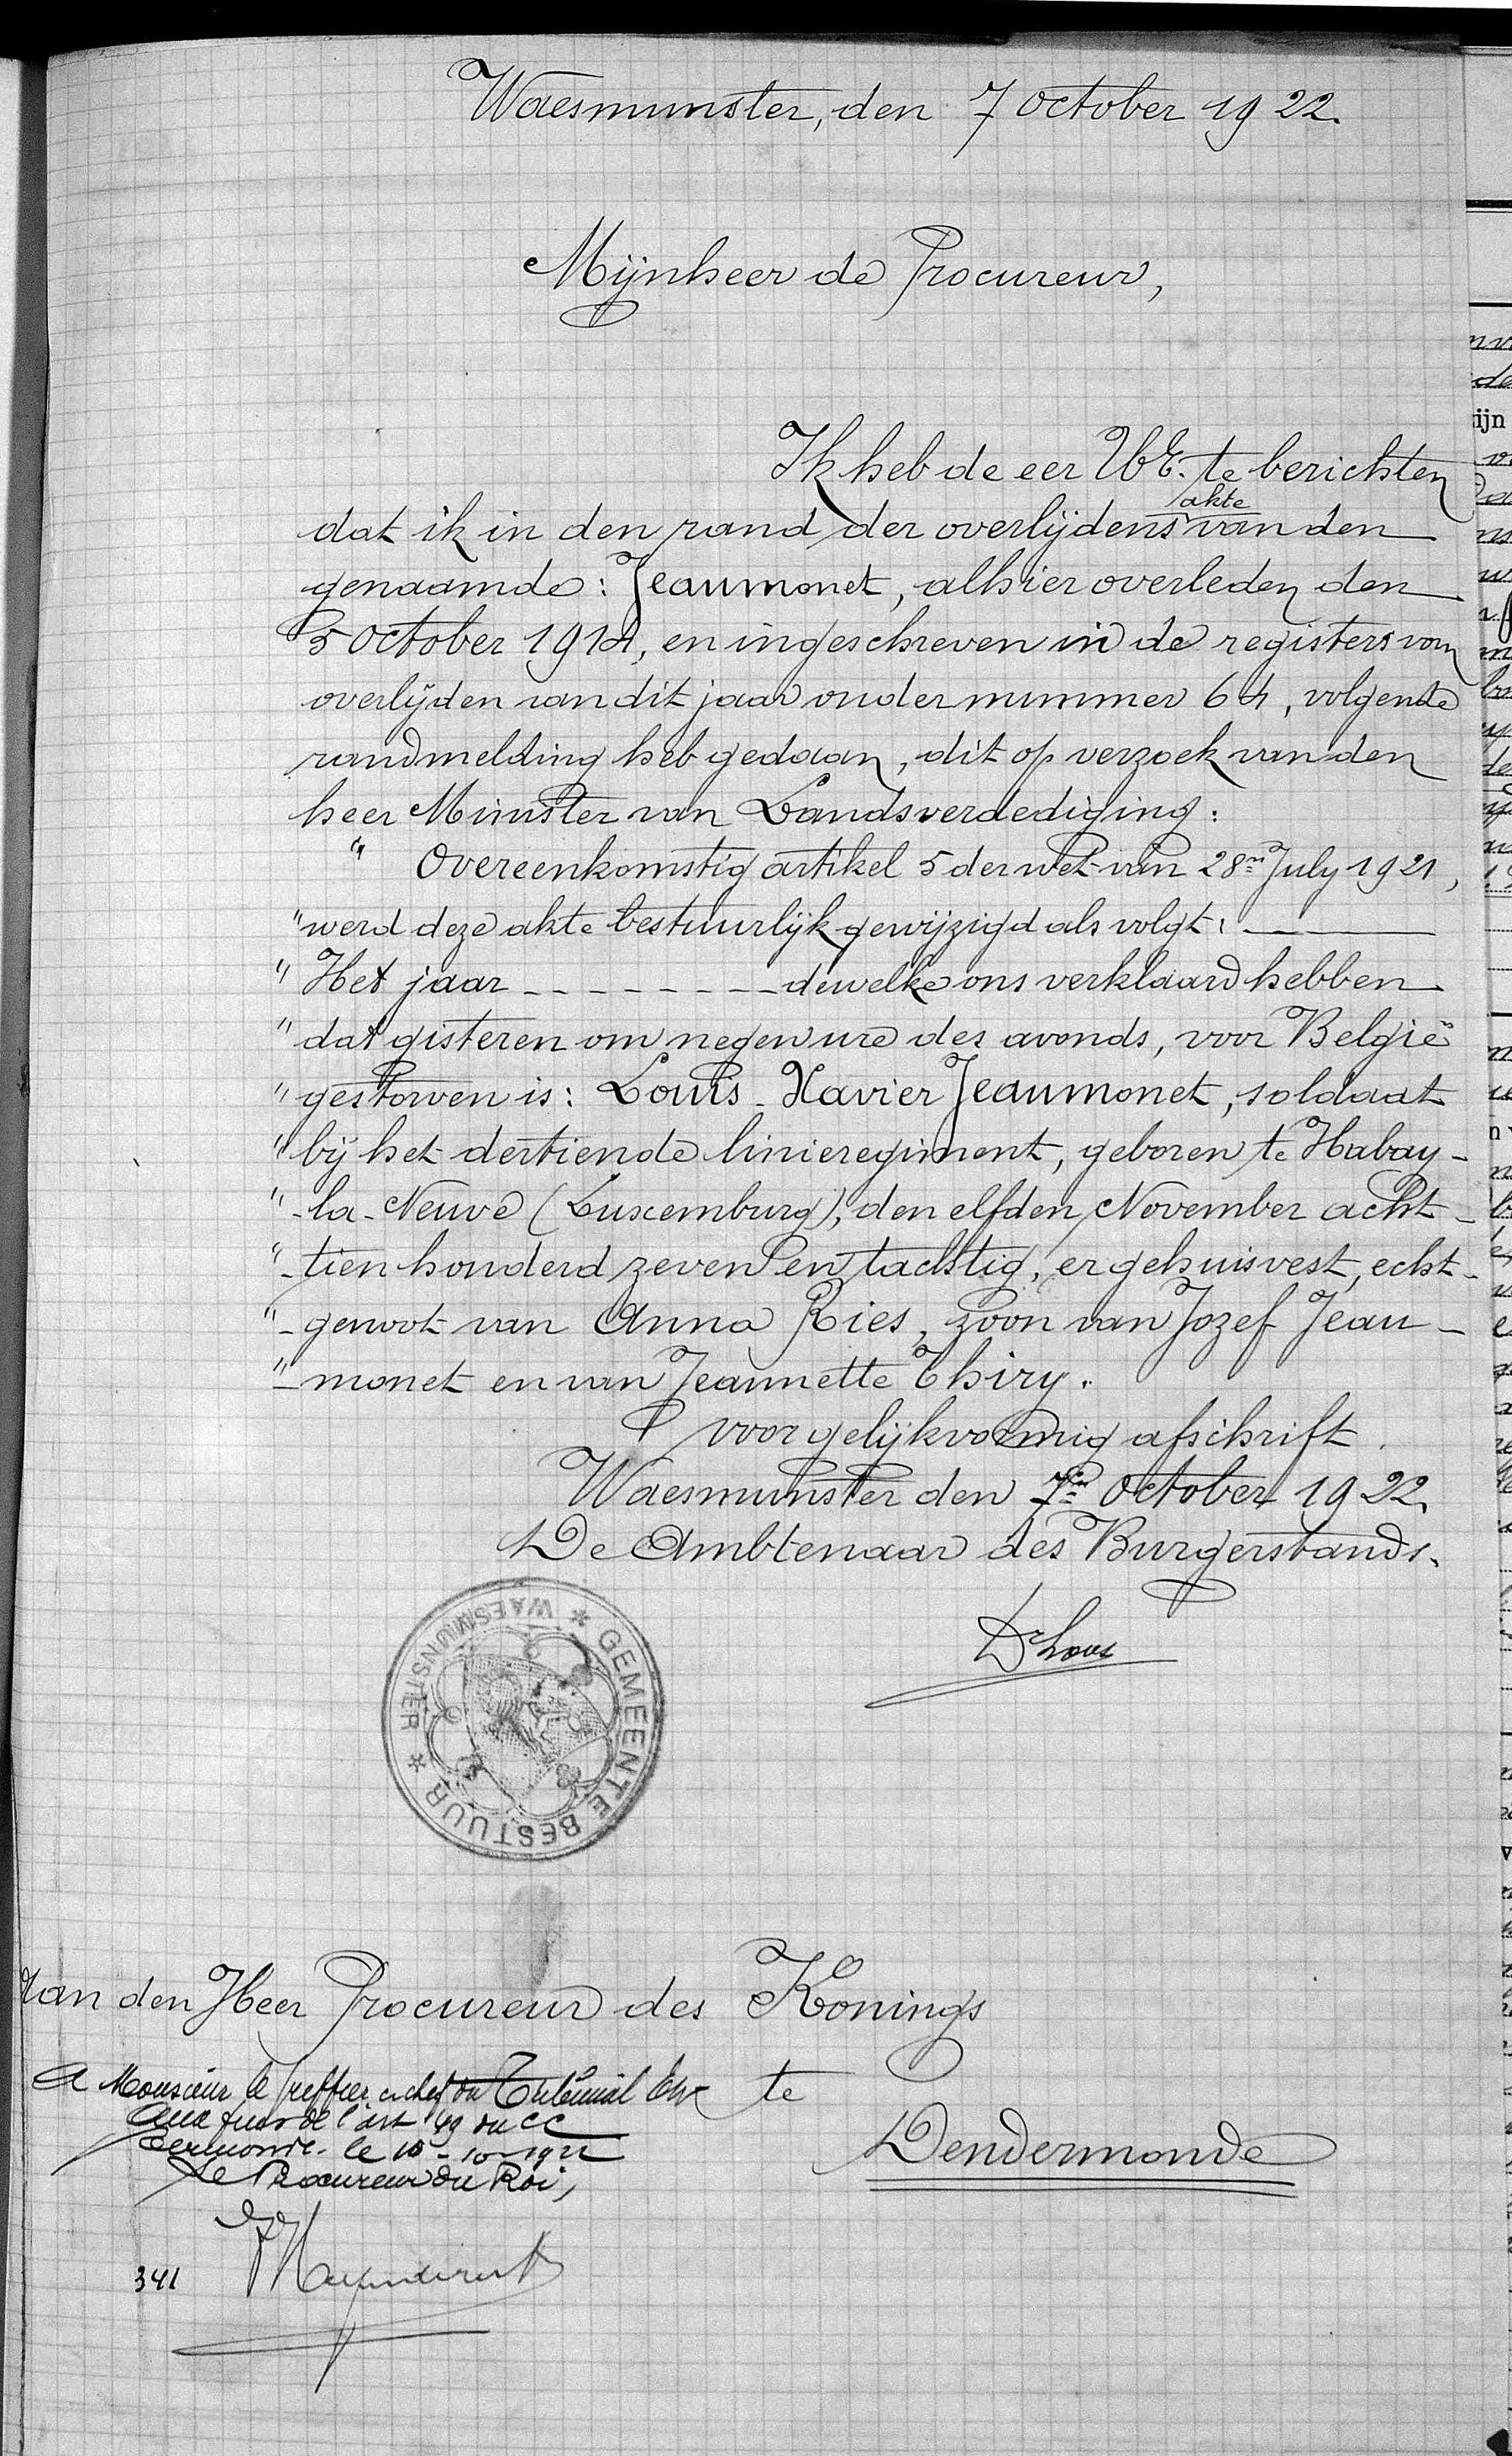 Waesmunster, den 7 October 1922.
Mijnheer de Procureur,
Ik heb de eer UE. te berichten
dat ik in den rand der overlijdens akte van den
genaamde: Jeaumonet, alhier overleden den
5 October 1914, en ingeschreven in de registers van
overlijden van dit jaar onder nummer 64, volgende
randmelding heb gedaan, dit op verzoek van den
heer Minister van Landsverdediging:
" Overeenkomstig artikel 5 der wet van 28n July 1921,
" werd deze akte bestuurlijk gewijzigd als volgt:
" Het jaar - - - - - - - - dewelke ons verklaard hebben
" dat gisteren om negen ure des avonds, voor België
" gestorven is: Louis-Xavier Jeaumonet, soldaat
" bij het dertiende linieregiment, geboren te Habay-
" -la-Neuve (Luxemburg), den elfden November acht-
" -tien honderd zeven en tachtig, er gehuisvest, echt-
" -genoot van Anna Ries, zoon van Jozef Jeau-
" -monet en van Jeannette Thiry.
Voor gelijkvormig afschrift.
Waesmunster den 7n October 1922.
De Ambtenaar des Burgerstands.
GEMEENTE BESTUUR * WAESMUNSTER *
Aan den Heer Procureur des Konings
te
Dendermonde
A Monsieur le Greffier en chef du Tribunal
Aux fins de l'art 49 du CC
Termonde. le 10-10-1922
Le Procureur du Roi,
341